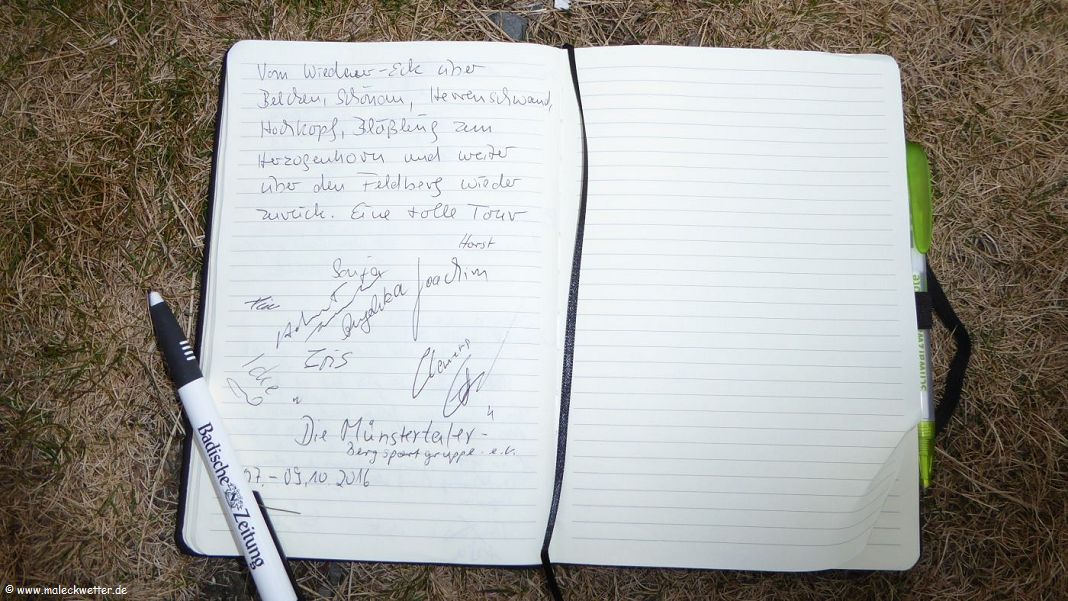 Vom Wiedener-Eck über
Belchen, Schönau, Herrenschwand,
Hochkopf, Blößling zum
Herzogenhorn und weiter
über den Feldberg wieder
zurück. Eine tolle Tour
Horst
Sonja
Joachim
Angelika
Iris
Clemens
"Die Münstertäler-
Bergsportgruppe e.V."
07.-09.10.2016
Badische Zeitung
© www.maleckwetter.de